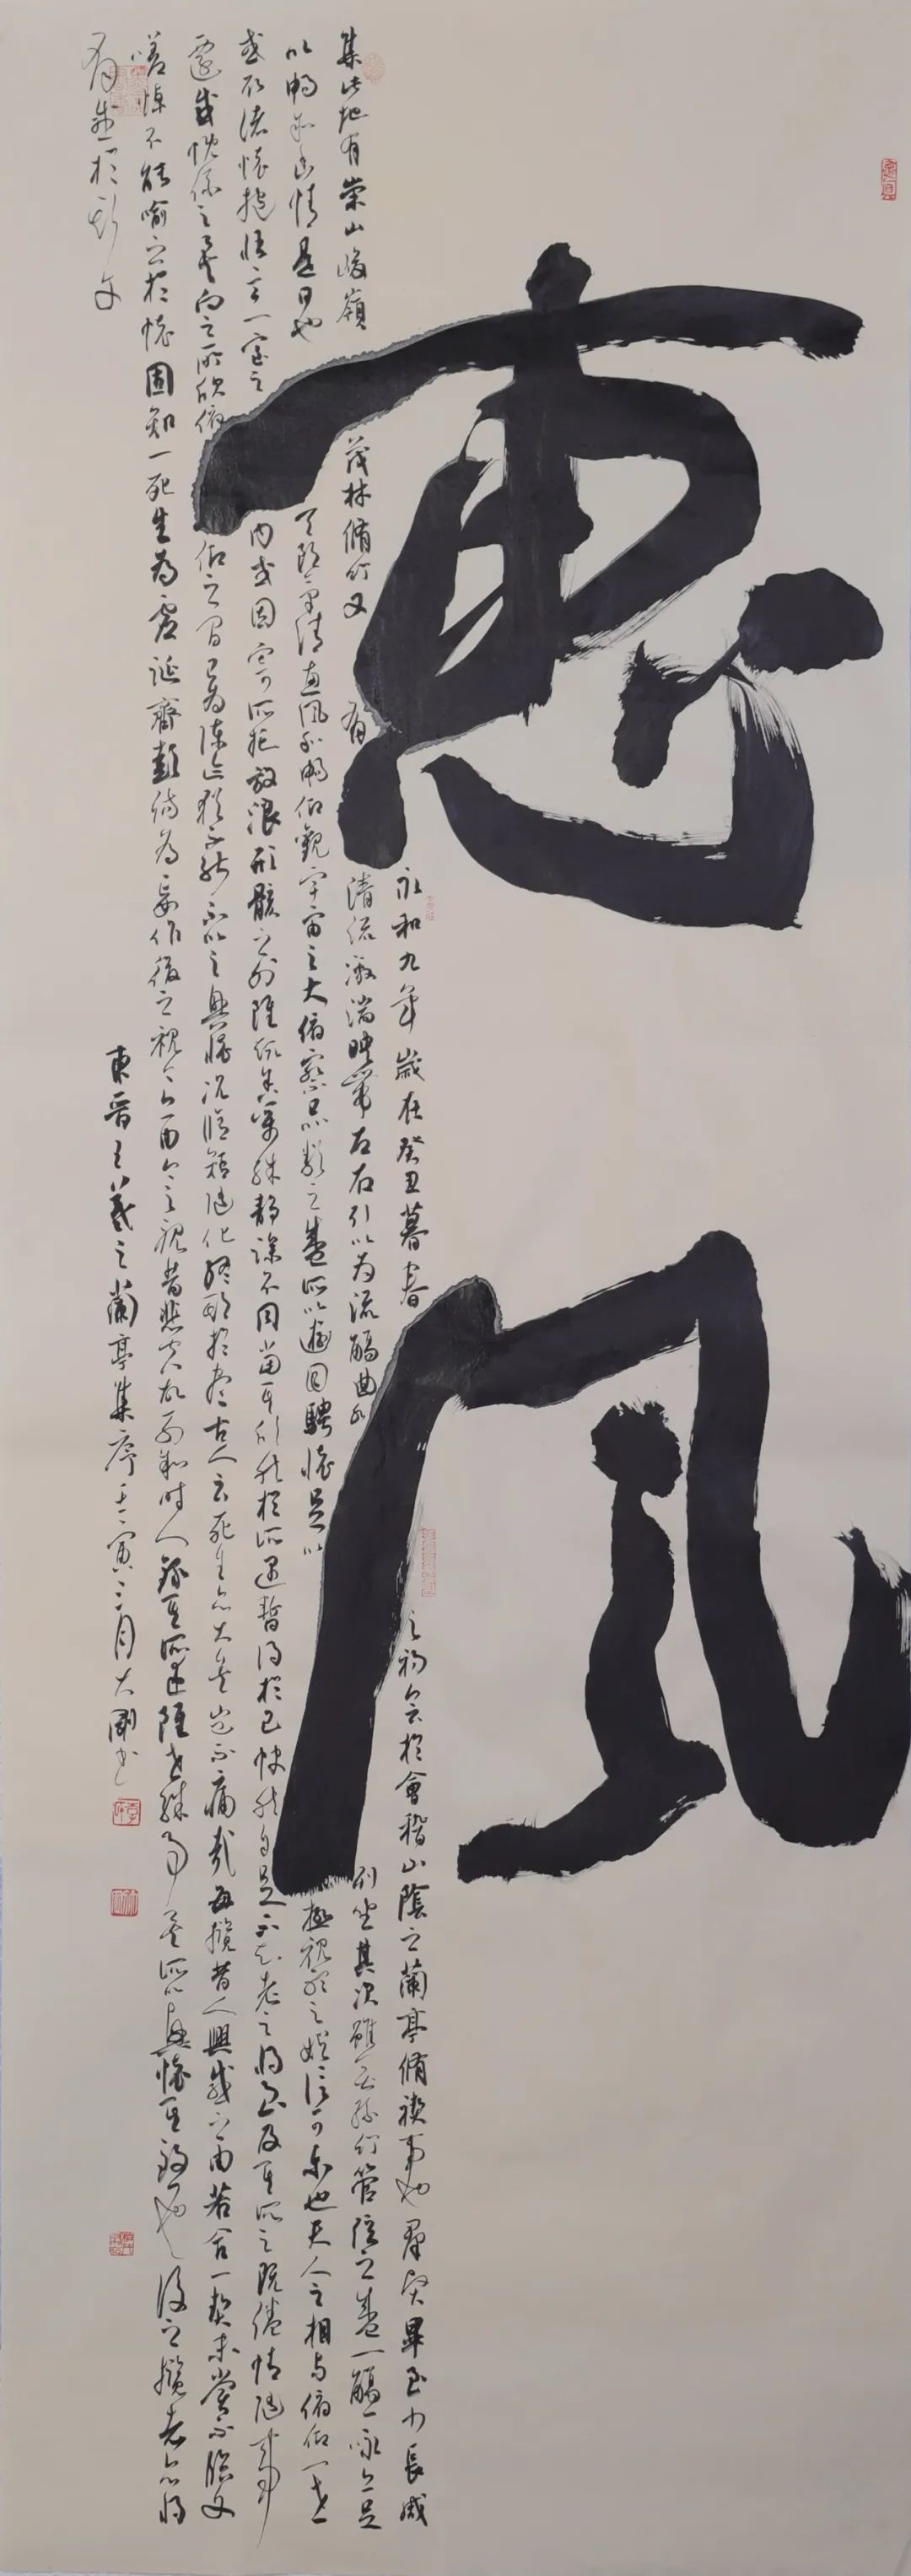 惠风
永和九年歲在癸丑暮春之初會於會稽山陰之蘭亭脩禊事也群賢畢至少長咸
集此地有崇山峻嶺茂林脩竹又有清流激湍映帶左右引以為流觴曲水列坐其次雖無絲竹管弦之盛一觴一詠亦足
以暢叙幽情是日也天朗氣清惠風和暢仰觀宇宙之大俯察品類之盛所以遊目騁懷足以極視聽之娛信可樂也夫人之相與俯仰一世
或取諸懷抱悟言一室之內或因寄所託放浪形骸之外雖趣舍萬殊靜躁不同當其欣於所遇暫得於己快然自足不知老之將至及其所之既倦情隨事
遷感慨係之矣向之所欣俯仰之間已為陳迹猶不能不以之興懷況脩短隨化終期於盡古人云死生亦大矣豈不痛哉每攬昔人興感之由若合一契未嘗不臨文
嗟悼不能喻之於懷固知一死生為虛誕齊彭殤為妄作後之視今亦由今之視昔悲夫故列叙時人錄其所述雖世殊事異所以興懷其致一也後之攬者亦將
有感於斯文
東晉王羲之蘭亭集序壬寅三月大剛書